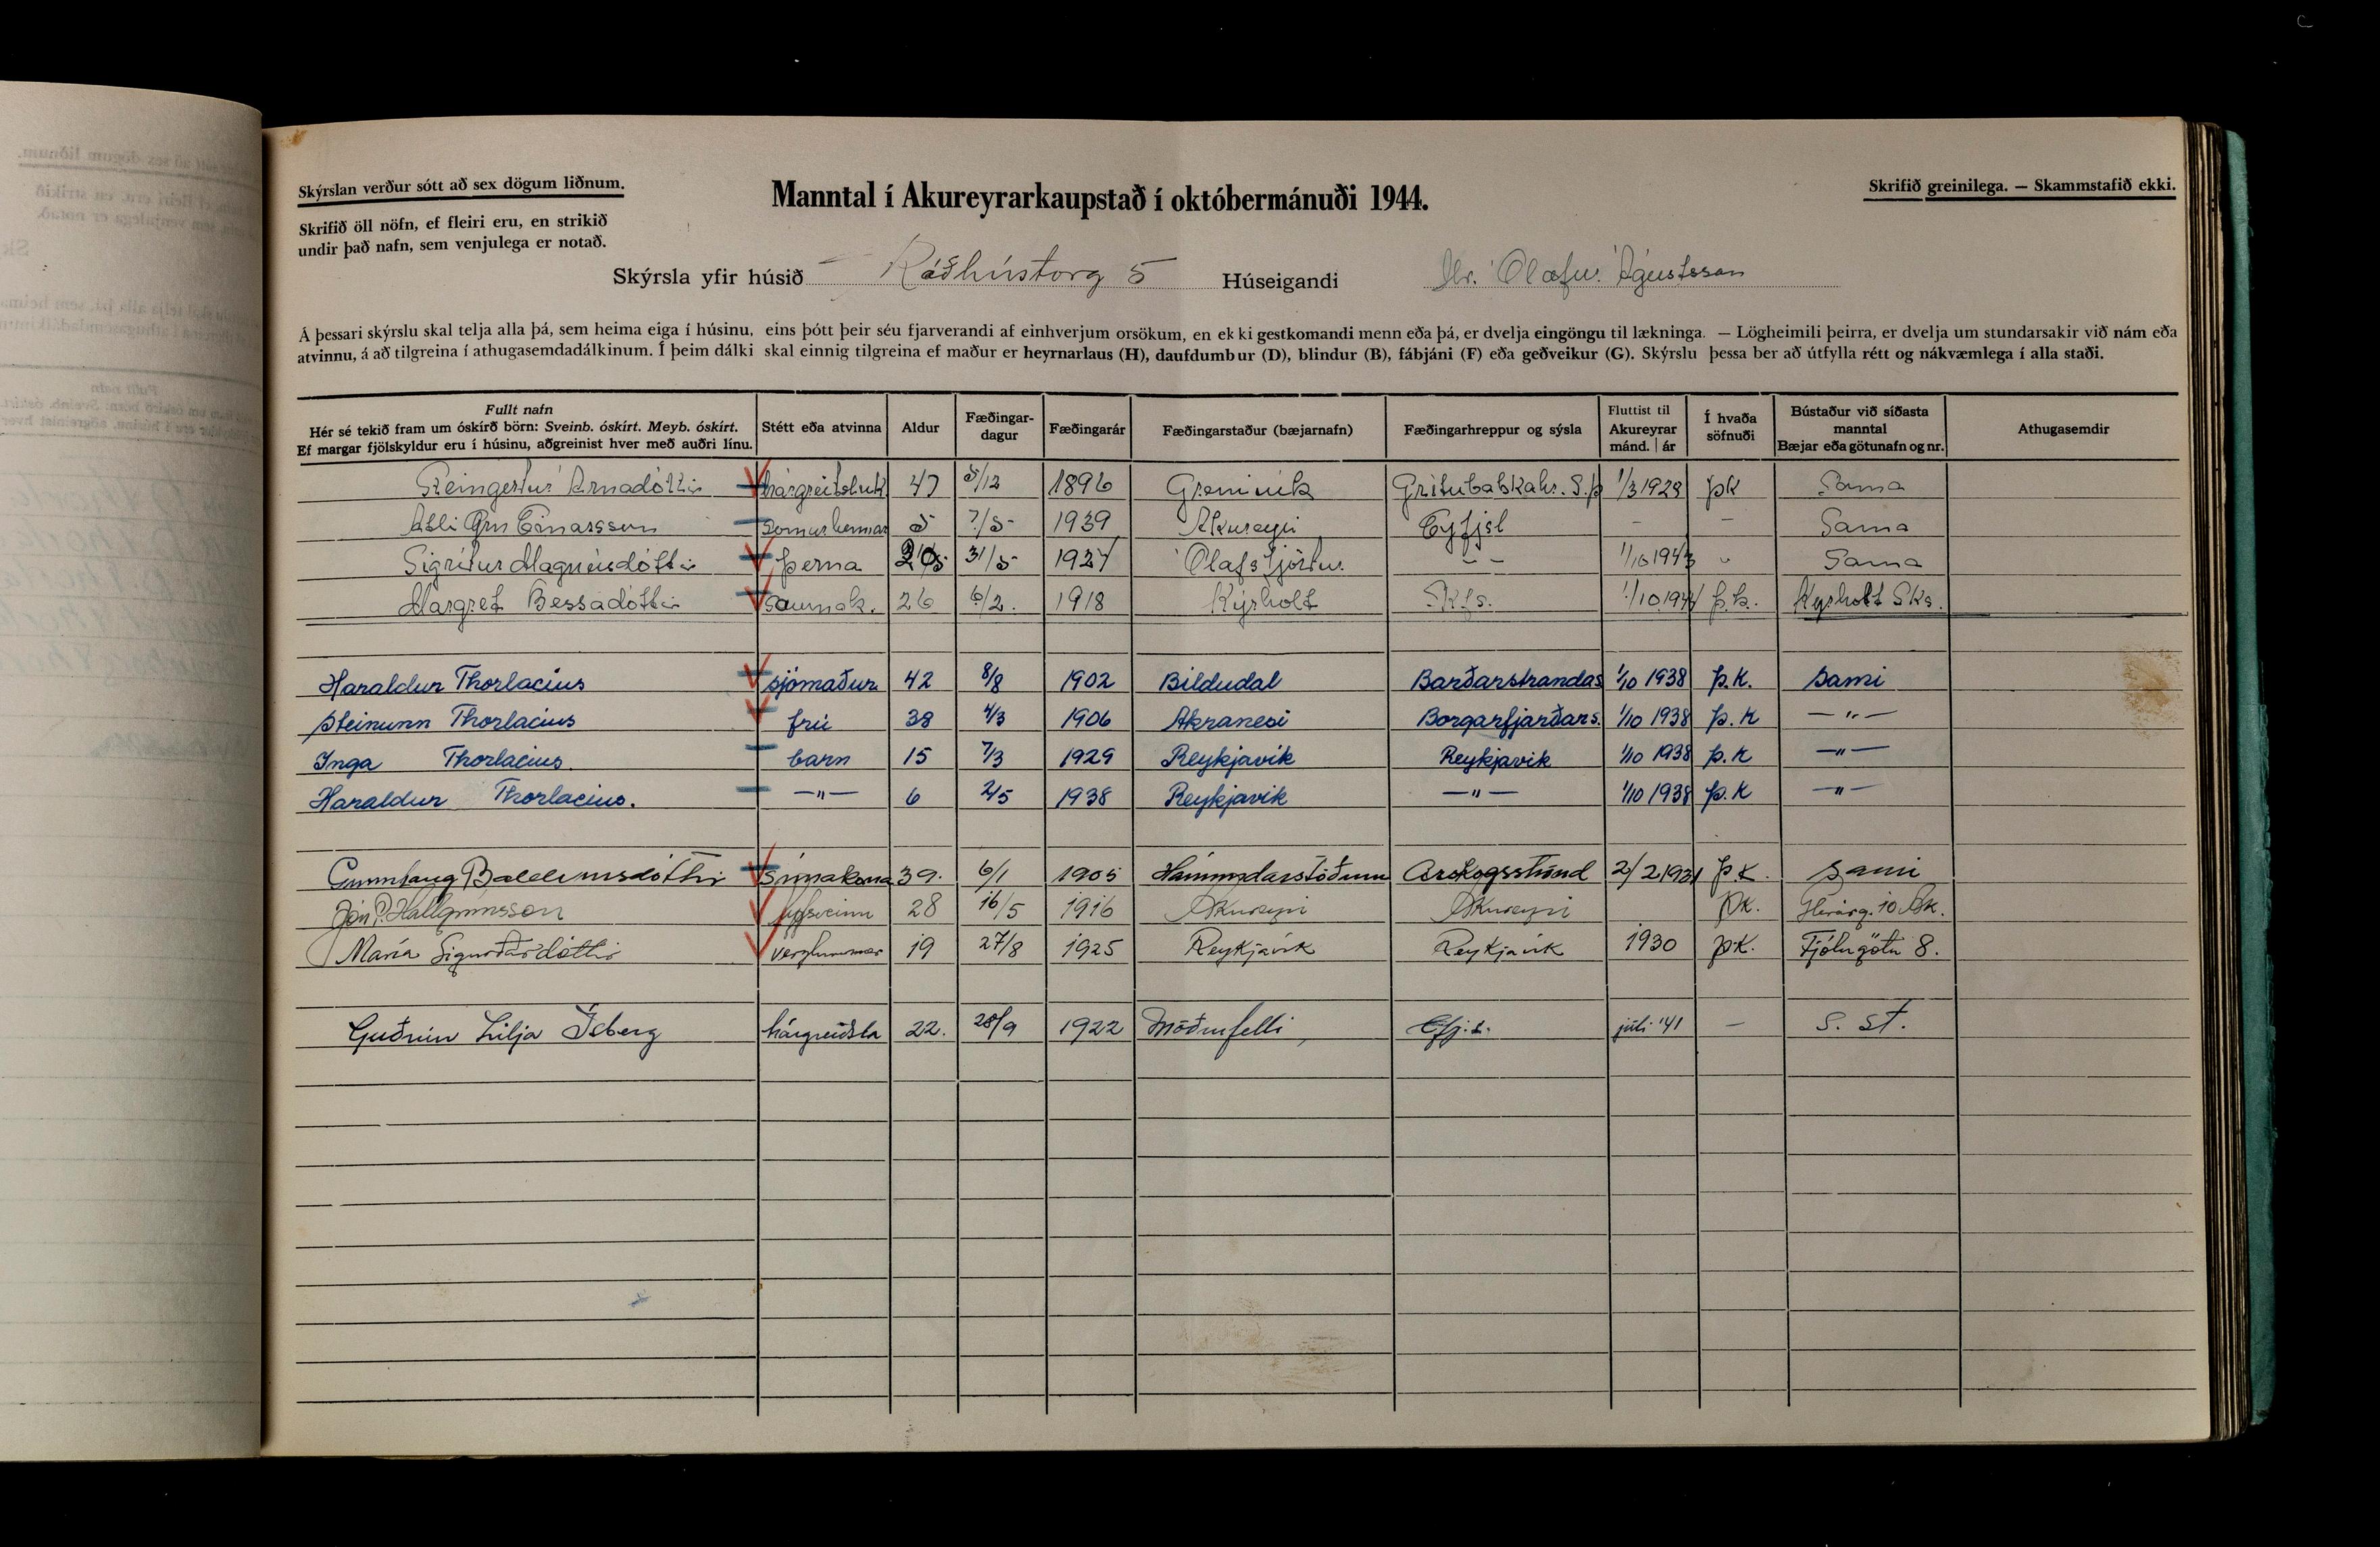 Skýrslan verður sótt að sex dögum liðnum.
Manntal í Akureyrarkaupstað í októbermánuði 1944.
Skrifið greinilega. — Skammstafið ekki.
Skrifið öll nöfn, ef fleiri eru, en strikið
undir það nafn, sem venjulega er notað.
Skýrsla yfir húsið Ráðhústorg 5 Húseigandi Hr. Olafur Ágústsson
Á þessari skýrslu skal telja alla þá, sem heima eiga í húsinu, eins þótt þeir séu fjarverandi af einhverjum orsökum, en ekki gestkomandi menn eða þá, er dvelja eingöngu til lækninga. — Lögheimili þeirra, er dvelja um stundarsakir við nám eða
atvinnu, á að tilgreina í athugasemdadálkinum. Í þeim dálki skal einnig tilgreina ef maður er heyrnarlaus (H), daufdumbur (D), blindur (B), fábjáni (F) eða geðveikur (G). Skýrslu þessa ber að útfylla rétt og nákvæmlega í alla staði.
Fullt nafn
Hér sé tekið fram um óskírð börn: Sveinb. óskírt. Meyb. óskírt.
Ef margar fjölskyldur eru í húsinu, aðgreinist hver með auðri línu.
Stétt eða atvinna
Aldur
Fæðingar-
dagur
Fæðingarár
Fæðingarstaður (bæjarnafn)
Fæðingarhreppur og sýsla
Fluttist til
Akureyrar
mánd. | ár
Í hvaða
söfnuði
Bústaður við síðasta
manntal
Bæjar eða götunafn og nr.
Athugasemdir
Steingerður Arnadóttir hárgreiðsluk 47 5/12 1896 Grenivík Grítubakkahr. S.þ 1/3 1928 þk Sama
Örn Einarsson sonur hennar 5 7/5 1939 Akureyri Eyfjsl – – Sama
Sigríður Magnúsdóttir þerna 31/5 1924 Olafsfjörður – – 1/10 1943 " Sama
Margret Bessadóttir saumak. 26 6/2. 1918 Kýrholt Skfs. 1/10 1944 þ.k. Kyrholt Sks.
Haraldur Thorlacius sjómaður 42 8/8 1902 Bildudal Barðarstrandas 1/10 1938 þ.K. Sami
Steinunn Thorlacius frú 38 4/3 1906 Akranesi Borgarfjarðars. 1/10 1938 þ.K —"—
Inga Thorlacius barn 15 7/3 1929 Reykjavik Reykjavik 1/10 1938 þ.K —"—
Haraldur Thorlacius. —"— 6 2/5 1938 Reykjavik —"— 1/10 1938 þ.K —"—
Gunnlaug Baldvinsdóttir símakona 39. 6/1 1905 Hámundarstöðum Arskogsströnd 2/2 1931 þK. Sami
Jón P. Hallgrímsson 28 16/5 1916 Akureyri Akureyri þk. Glerárg. 10 Ak.
María Sigurðardóttir 19 27/8 1925 Reykjavík Reykjavík 1930 þK. Fjólugötu 8.
Guðrún Lilja Ísberg hárgreiðsla 22. 28/9 1922 Möðrufelli, Efj.s. júli '41 — S. st.